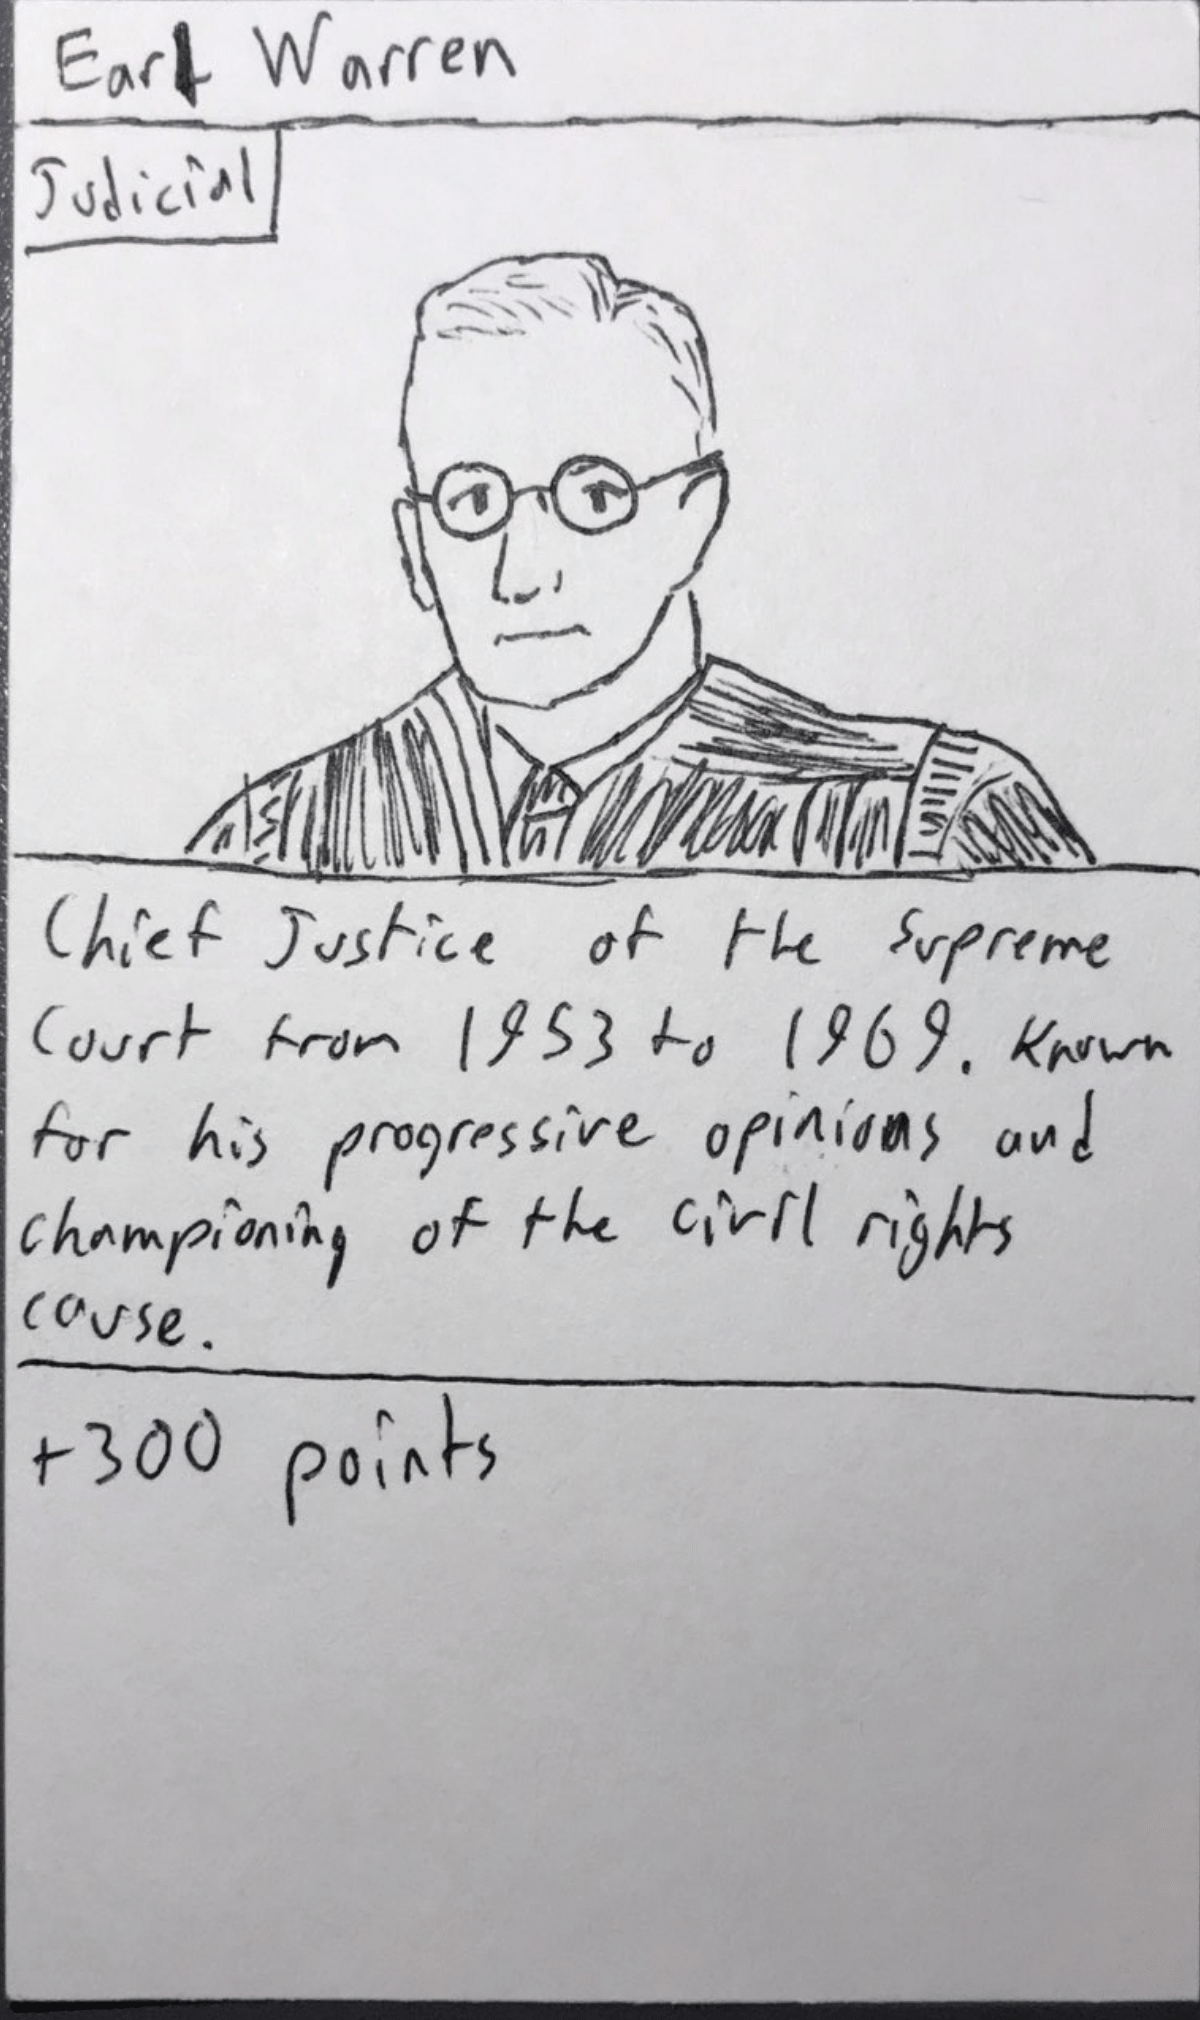 Earl Warren
Judicial
Chief Justice of the Supreme
Court from 1953 to 1969. Known
for his progressive opinions and
championing of the civil rights
cause.
+300 points